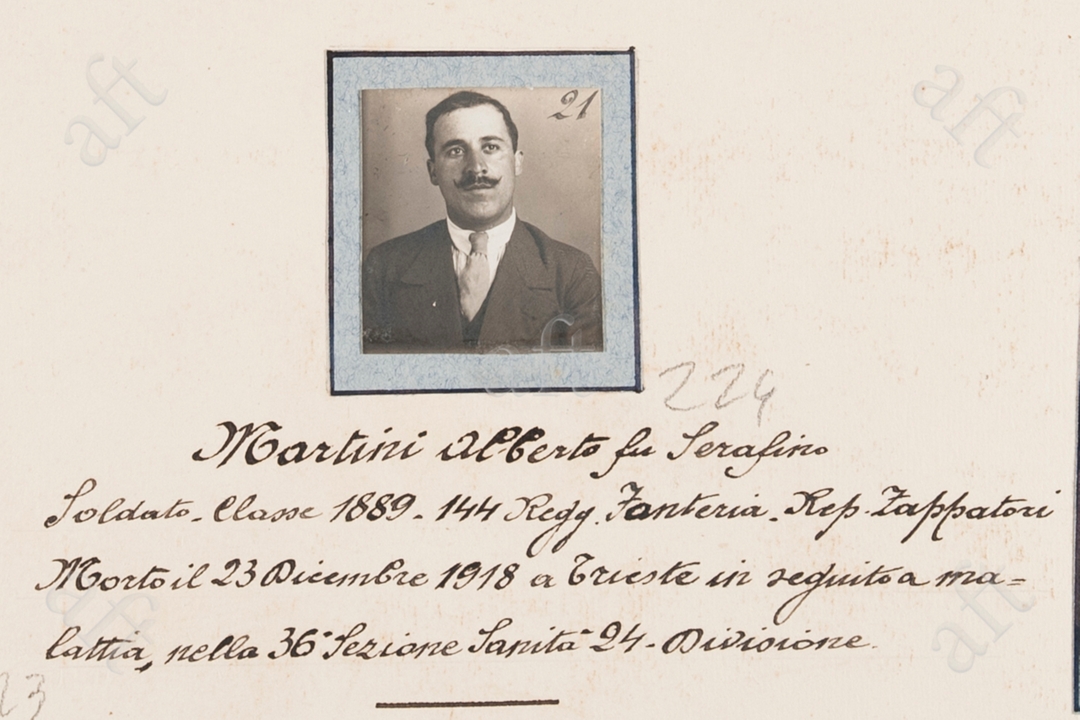 21
224
Martini Alberto fu Serafino
Soldato - Classe 1889 - 144 Regg. Fanteria - Rep. Zappatori
Morto il 23 Dicembre 1918 a Trieste in seguito a ma=
lattia, nella 36ª Sezione Sanità 24 - Divisione.
23
aft
aft
aft
aft
aft